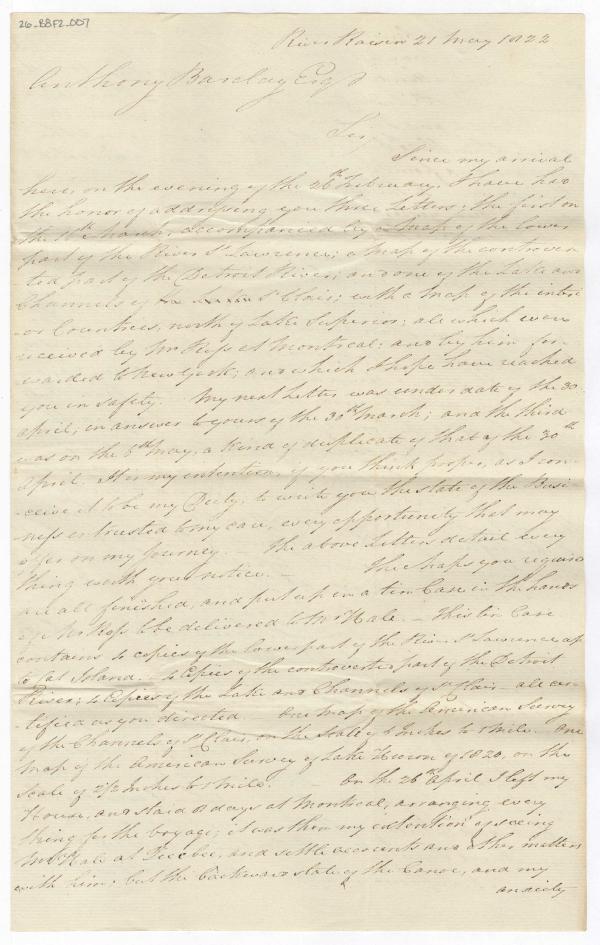 26_BBF2_007
River Raisin 21 May 1822
Anthony Barclay Esqr
Sir,
Since my arrival
here, on the evening of the 26th February, I have had
the honor of addressing you three Letters; the first on
the March, accompanied by a Map of the lower
part of the River St Lawrence; a Map of the controver
ted part of the Detroit River; and one of the Lake and
Channels of St Clair; with a Map of the interi
-or Countries, north of Lake Superior: all which were
received by Mr Hess at Montreal: and by him for-
warded to New York; and which I hope have reached
you in safety. My next Letter was under date of the 30
April, in answer to yours of the 30th March; and the third
was on the 6th May, a kind of duplicate of that of the 30th
April. It is my intention, if you think proper, as I con-
-ceive it to be my Duty, to write you the state of the Busi
ness entrusted to my care, every opportunity that may
offer on my Journey. The above Letters detail every
thing worth your notice. — The Maps you require
are all finished, and put up in a tin Case in the hands
of Mr Hess to be delivered to Mr Hale. — This tin Case
contains 4 copies of the lower part of the River St Lawrence up
to Cat Island. — 4 Copies of the controverted part of the Detroit
River; 4 Copies of the Lake and Channels of St Clair — all cer-
-tified as you directed. — One Map of the American Survey
of the Channels of St Clair, on the Scale of Inches to 1 Mile. One
Map of the American Survey of Lake Huron of 1820, on the
scale of 2/2 Inches to 1 Mile. — On the 26th April I left my
House, and staid 8 days at Montreal, arranging every
thing for the voyage; it was then my intention of seeing
Mr Hale at Quebec, and settle accounts and other matters
with him; but the backward state of the Canoe, and my
anxiety